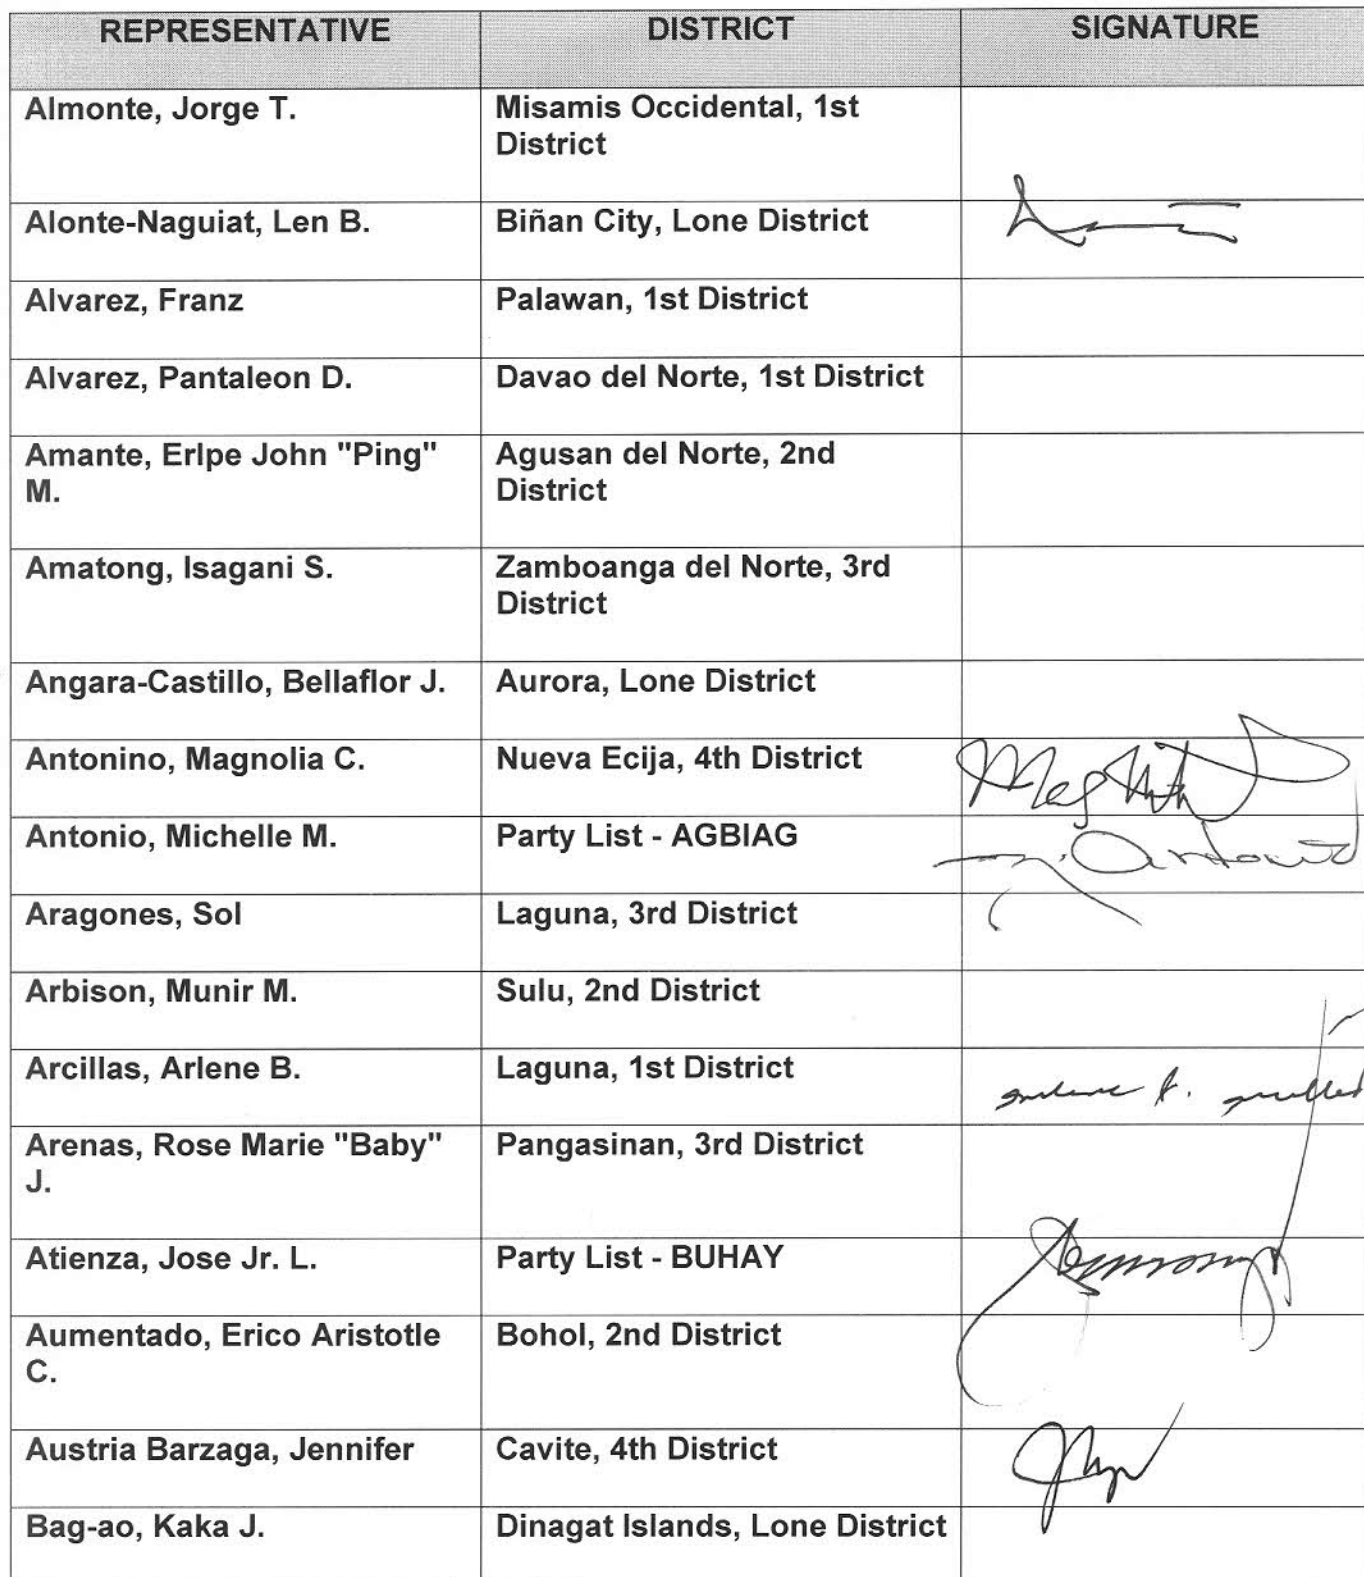 REPRESENTATIVE DISTRICT SIGNATURE
Almonte, Jorge T. Misamis Occidental, 1st
District
Alonte-Naguiat, Len B. Biñan City, Lone District
Alvarez, Franz Palawan, 1st District
Alvarez, Pantaleon D. Davao del Norte, 1st District
Amante, Erlpe John "Ping" Agusan del Norte, 2nd
M. District
Amatong, Isagani S. Zamboanga del Norte, 3rd
District
Angara-Castillo, Bellaflor J. Aurora, Lone District
Antonino, Magnolia C. Nueva Ecija, 4th District
Antonio, Michelle M. Party List - AGBIAG
Aragones, Sol Laguna, 3rd District
Arbison, Munir M. Sulu, 2nd District
Arcillas, Arlene B. Laguna, 1st District
Arenas, Rose Marie "Baby" Pangasinan, 3rd District
J.
Atienza, Jose Jr. L. Party List - BUHAY
Aumentado, Erico Aristotle Bohol, 2nd District
C.
Austria Barzaga, Jennifer Cavite, 4th District
Bag-ao, Kaka J. Dinagat Islands, Lone District